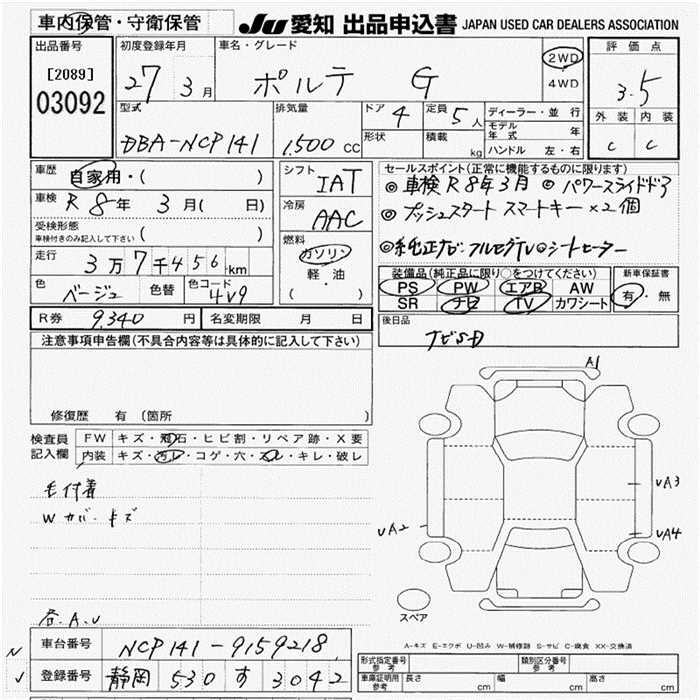 車内保管・守衛保管
JU 愛知 出品申込書 JAPAN USED CAR DEALERS ASSOCIATION
出品番号
[2089]
03092
初度登録年月
27 3月
車名・グレード
ポルテ G
2WD
4WD
評価点
3.5
外装 内装
C C
型式
DBA-NCP141
排気量
1,500 CC
ドア 4
形状
定員 5人
積載 kg
ディーラー・並行
モデル年式 年
ハンドル 左・右
車歴 自家用・( )
車検 R 8年 3月( 日)
受検形態
車検付きのみ記入して下さい ( )
走行 3万7千456km
色 ベージュ 色替 色コード 4V9
シフト
IAT
冷房
AAC
燃料
ガソリン
軽・油
( )
セールスポイント(正常に機能するものに限ります)
◎車検R8年3月 ◎パワースライドドア
◎プッシュスタート スマートキー×2個
◎純正ナビ・フルセグTV◎シートヒーター
装備品(純正品に限り○をつけてください)
PS PW エアB AW
SR ナビ TV カワシート
新車保証書
有・無
R券 9,340 円 名変期限 月 日
後日品
ナビSD
注意事項申告欄(不具合内容等は具体的に記入して下さい)
修復歴 有 (箇所 )
検査員
記入欄
FW キズ・飛石・ヒビ割・リペア跡・X要
内装 キズ・汚レ・コゲ・穴・スレ・キレ・破レ
毛付着
W カバ・キズ
各A.U
A1
UA3
UA2
UA4
スペア
A-キズ E-エクボ U-凹み W-補修跡 S-サビ C-腐食 XX-交換済
車台番号 NCP141-9159218
登録番号 静岡 530 す 3042
形式指定番号
参考
類別区分番号
参考
車庫証明用
参考
長さ cm 幅 cm 高さ cm